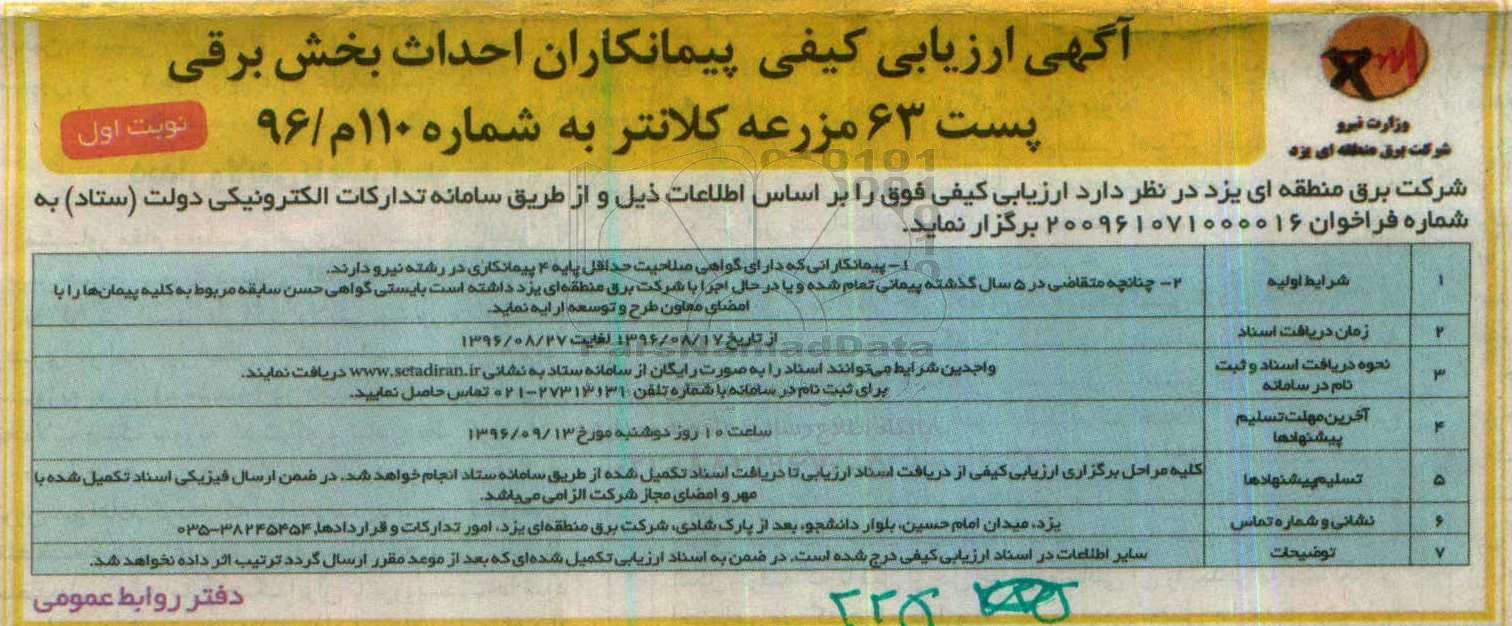 آگهی ارزیابی کیفی پیمانکاران احداث بخش برقی
پست ۶۳ مزرعه کلانتر به شماره ۱۱۰م/۹۶
نوبت اول
وزارت نیرو
شرکت برق منطقه ای یزد
شرکت برق منطقه ای یزد در نظر دارد ارزیابی کیفی فوق را بر اساس اطلاعات ذیل و از طریق سامانه تدارکات الکترونیکی دولت (ستاد) به
شماره فراخوان ۲۰۰۹۶۱۰۷۱۰۰۰۰۱۶ برگزار نماید.
۱ شرایط اولیه ۱- پیمانکارانی که دارای گواهی صلاحیت حداقل پایه ۴ پیمانکاری در رشته نیرو دارند.
۲- چنانچه متقاضی در ۵ سال گذشته پیمانی تمام شده و یا در حال اجرا با شرکت برق منطقه‌ای یزد داشته است بایستی گواهی حسن سابقه مربوط به کلیه پیمان‌ها را با
امضای معاون طرح و توسعه ارایه نماید.
۲ زمان دریافت اسناد از تاریخ ۱۳۹۶/۰۸/۱۷ لغایت ۱۳۹۶/۰۸/۲۷
۳ نحوه دریافت اسناد و ثبت نام در سامانه واجدین شرایط می‌توانند اسناد را به صورت رایگان از سامانه ستاد به نشانی www.setadiran.ir دریافت نمایند.
برای ثبت نام در سامانه با شماره تلفن ۲۷۳۱۳۱۳۱-۰۲۱ تماس حاصل نمایید.
۴ آخرین مهلت تسلیم پیشنهادها ساعت ۱۰ روز دوشنبه مورخ ۱۳۹۶/۰۹/۱۳
۵ تسلیم پیشنهادها کلیه مراحل برگزاری ارزیابی کیفی از دریافت اسناد ارزیابی تا دریافت اسناد تکمیل شده از طریق سامانه ستاد انجام خواهد شد. در ضمن ارسال فیزیکی اسناد تکمیل شده با
مهر و امضای مجاز شرکت الزامی می‌باشد.
۶ نشانی و شماره تماس یزد، میدان امام حسین، بلوار دانشجو، بعد از پارک شادی، شرکت برق منطقه‌ای یزد، امور تدارکات و قراردادها، ۳۸۲۴۵۴۵۴-۰۳۵
۷ توضیحات سایر اطلاعات در اسناد ارزیابی کیفی درج شده است. در ضمن به اسناد ارزیابی تکمیل شده‌ای که بعد از موعد مقرر ارسال گردد ترتیب اثر داده نخواهد شد.
دفتر روابط عمومی
ParsNamadData
۲۲۵